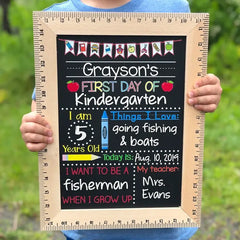 Grayson's
FIRST DAY OF
Kindergarten
I am
5
Years Old
Things I Love:
going fishing
& boats
Today is: Aug. 10, 2019
I WANT TO BE A
fisherman
WHEN I GROW UP
My teacher
Mrs.
Evans